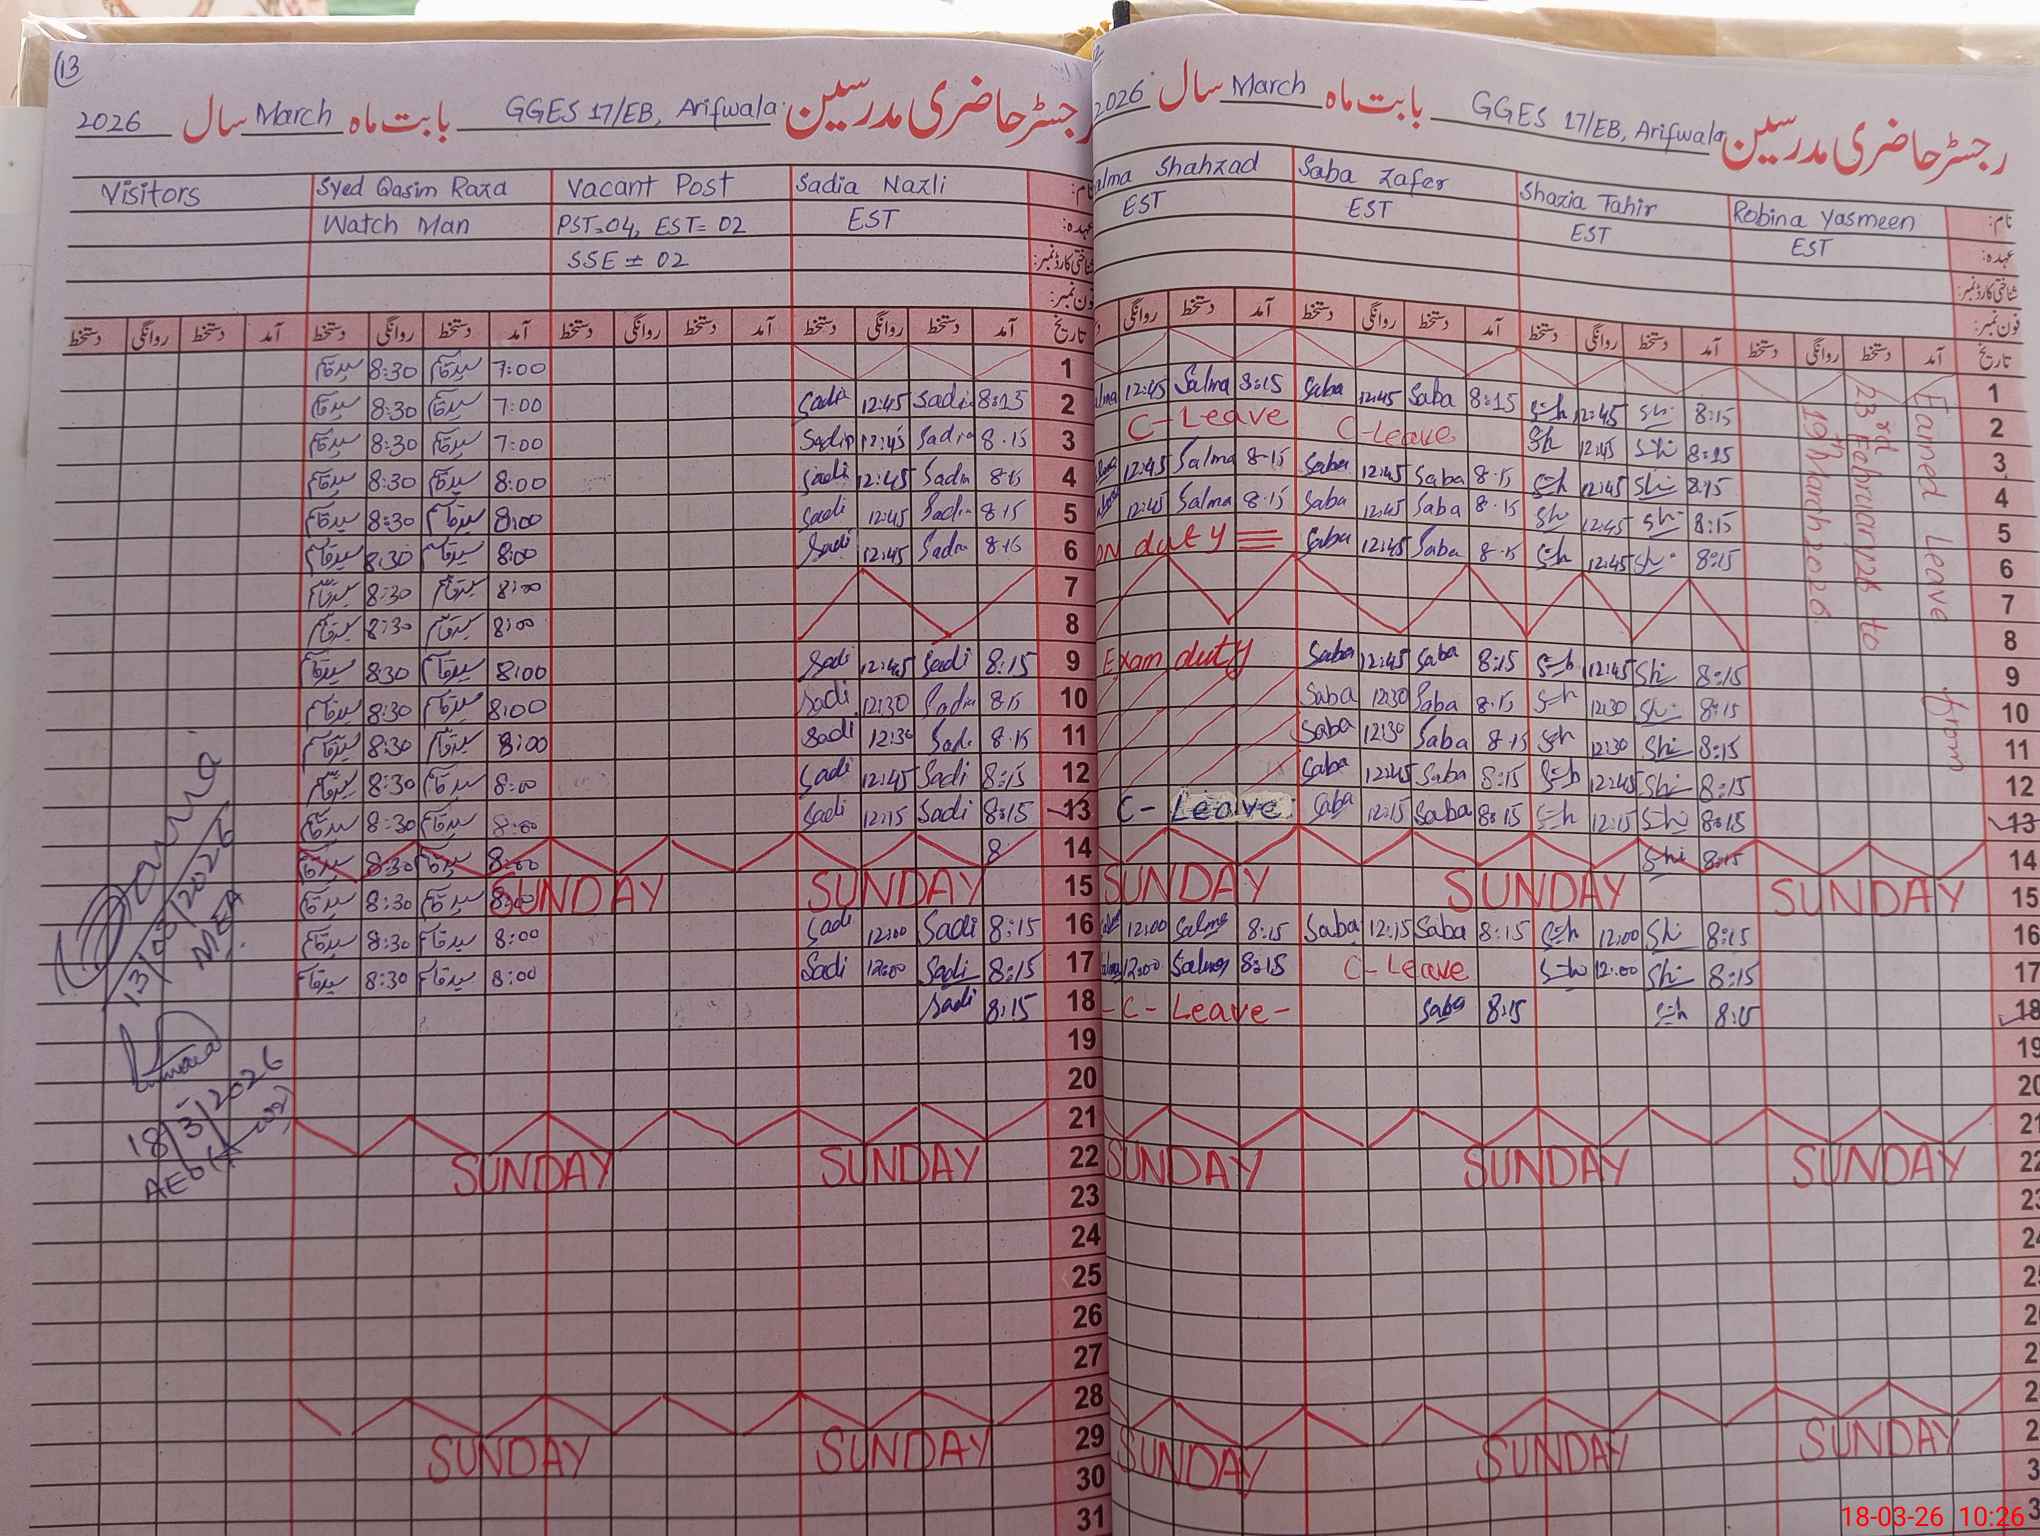 13
2026 سال March بابت ماہ GGES 17/EB, Arifwala رجسٹر حاضری مدرسین
Visitors | Syed Qasim Raza | Vacant Post | Sadia Nazli | نام:
Watch Man | PST=04, EST= 02 | EST | عہدہ:
SSE = 02 | شناختی کارڈ نمبر:
فون نمبر:
دستخط | روانگی | دستخط | آمد | دستخط | روانگی | دستخط | آمد | دستخط | روانگی | دستخط | آمد | دستخط | روانگی | دستخط | آمد | تاریخ
8:30 | 7:00 | 1
8:30 | 7:00 | Sadia | 12:45 | Sadia | 8:15 | 2
8:30 | 7:00 | Sadia | 12:45 | Sadia | 8.15 | 3
8:30 | 8:00 | Sadi | 12:45 | Sadia | 8.15 | 4
8:30 | 8:00 | Sadi | 12:45 | Sadia | 8.15 | 5
8:30 | 8:00 | Sadi | 12:45 | Sadia | 8.15 | 6
8:30 | 8:00 | 7
8:30 | 8:00 | 8
8:30 | 8:00 | Sadi | 12:45 | Sadi | 8:15 | 9
8:30 | 8:00 | Sadi | 12:30 | Sadia | 8.15 | 10
8:30 | 8:00 | Sadi | 12:30 | Sadi | 8.15 | 11
8:30 | 8:00 | Sadi | 12:45 | Sadi | 8:15 | 12
8:30 | 8:00 | Sadi | 12:15 | Sadi | 8:15 | 13
8:30 | 8:00 | 8 | 14
8:30 | 8:00 | SUNDAY | SUNDAY | 15
8:30 | 8:00 | Sadi | 12:00 | Sadi | 8:15 | 16
8:30 | 8:00 | Sadi | 12:00 | Sadi | 8:15 | 17
Sadi | 8:15 | 18
19
20
21
SUNDAY | SUNDAY | 22
23
24
25
26
27
28
SUNDAY | SUNDAY | 29
30
31
13/03/2026
MEA
18/3/2026
AEO
2026 سال March بابت ماہ GGES 17/EB, Arifwala رجسٹر حاضری مدرسین
alma Shahzad | Saba Zafer | Shazia Tahir | Robina Yasmeen | نام:
EST | EST | EST | EST | عہدہ:
شناختی کارڈ نمبر:
فون نمبر:
روانگی | دستخط | آمد | دستخط | روانگی | دستخط | آمد | دستخط | روانگی | دستخط | آمد | دستخط | روانگی | دستخط | آمد | تاریخ
1
12:45 | Salma | 8:15 | Saba | 12:45 | Saba | 8:15 | Sh | 12:45 | Sh | 8:15 | 2
C-Leave | C-Leave | Sh | 12:45 | Shi | 8:15 | 3
12:45 | Salma | 8.15 | Saba | 12:45 | Saba | 8.15 | Sh | 12:45 | Shi | 8:15 | 4
12:45 | Salma | 8.15 | Saba | 12:45 | Saba | 8.15 | Sh | 12:45 | Shi | 8:15 | 5
ON duty | Saba | 12:45 | Saba | 8.15 | Sh | 12:45 | Shi | 8:15 | 6
7
8
Exam duty | Saba | 12:45 | Saba | 8:15 | Sh | 12:45 | Shi | 8:15 | 9
Saba | 12:30 | Saba | 8.15 | Sh | 12:30 | Shi | 8:15 | 10
Saba | 12:30 | Saba | 8.15 | Sh | 12:30 | Shi | 8:15 | 11
Saba | 12:45 | Saba | 8:15 | Sh | 12:45 | Shi | 8:15 | 12
C- Leave | Saba | 12:15 | Saba | 8:15 | Sh | 12:15 | Shi | 8:15 | 13
Shi | 8:15 | 14
SUNDAY | SUNDAY | SUNDAY | 15
12:00 | Salma | 8:15 | Saba | 12:15 | Saba | 8:15 | Sh | 12:00 | Shi | 8:15 | 16
12:00 | Salma | 8:15 | C-Leave | Sh | 12:00 | Shi | 8:15 | 17
-C- Leave- | Saba | 8:15 | Sh | 8:15 | 18
19
20
21
SUNDAY | SUNDAY | SUNDAY | 22
SUNDAY | SUNDAY | SUNDAY
Earned Leave from
23rd February 26 to
19th March 2026
18-03-26 10:26